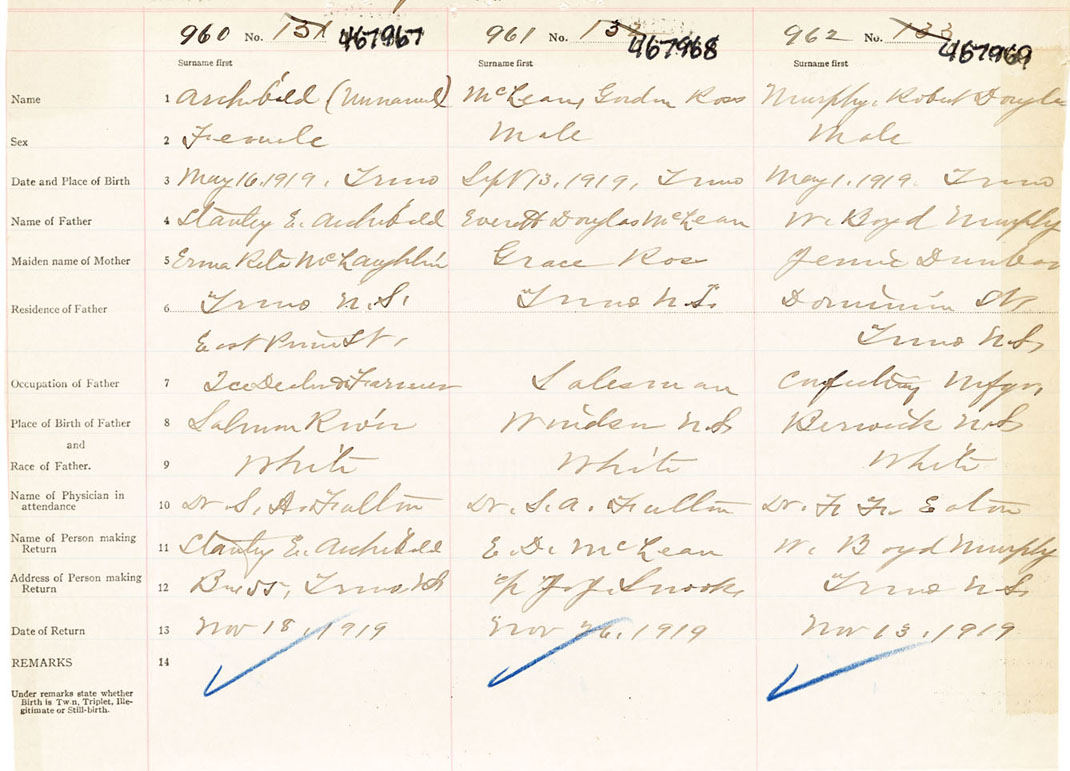 960 No. 131 467967 961 No. 132 467968 962 No. 133 467969
Surname first Surname first Surname first
Name 1 Archibald (Unnamed) McLean, Gordon Ross Murphy, Robert Douglas
Sex 2 Female Male Male
Date and Place of Birth 3 May 16, 1919, Truro Sept 13, 1919, Truro May 1, 1919. Truro
Name of Father 4 Stanley E. Archibald Everett Douglas McLean W. Boyd Murphy
Maiden name of Mother 5 Erma Reta McLaughlin Grace Ross Jennie Dunbar
Residence of Father 6 Truro N.S. Truro N.S. Dominion St
East Prince St. Truro N.S.
Occupation of Father 7 Ice Dealer & Farmer Salesman Mfgr.
Place of Birth of Father 8 Salmon River Windsor N.S Berwick N.S
and
Race of Father. 9 White White White
Name of Physician in
attendance 10 Dr. S. A. Fulton Dr. S. A. Fulton Dr. F. F. Eaton
Name of Person making
Return 11 Stanley E. Archibald E. D. McLean W. Boyd Murphy
Address of Person making
Return 12 Box 55, Truro N.S Snook Truro N.S.
Date of Return 13 Nov 18, 1919 Nov 26, 1919 Nov 13, 1919
REMARKS 14
Under remarks state whether
Birth is Twin, Triplet, Ille-
gitimate or Still-birth.